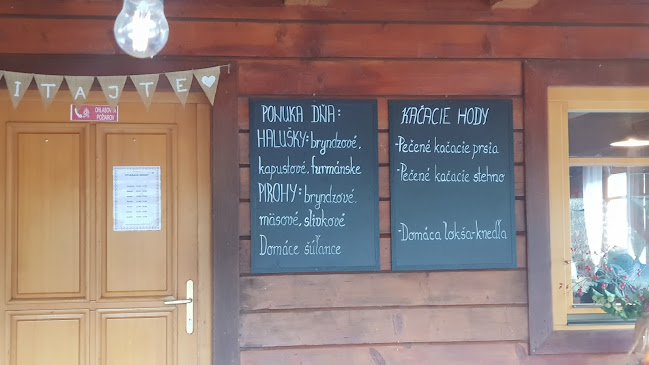 ITAJTE
OHLASOVŇA
POŽIAROV
PONUKA DŇA:
HALUŠKY: bryndzové,
kapustové, furmánske
PIROHY: bryndzové
mäsové, slivkové
Domáce šúľance
KAČACIE HODY
-Pečené kačacie prsia
-Pečené kačacie stehno
-Domáca lokša-knedľa